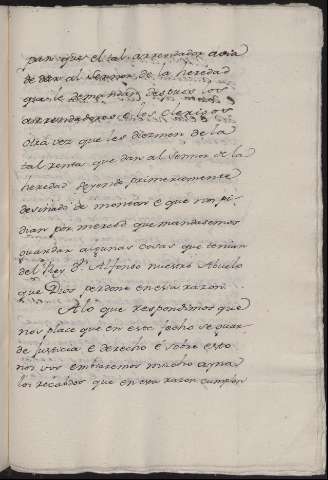 par que el tal arrendador avia
de dar al Señor de la heredad
que le demandan despues los
arrendadores e los clerigos
otra vez que les diezmen de la
tal renta que dan al Señor de la
heredad seyendo primeramente
desmado de monton e que nos pi-
dian por merced que mandasemos
guardar algunas cosas que tenian
del Rey Dn. Alfonso nuestro Abuelo
que Dios perdone en esta razon.
A lo que respondimos que
nos place que en este fecho se guar-
de justicia e derecho e sobre esto
nos vos embiaremos mucho ayna
los recabdos que en esta razon cumplan